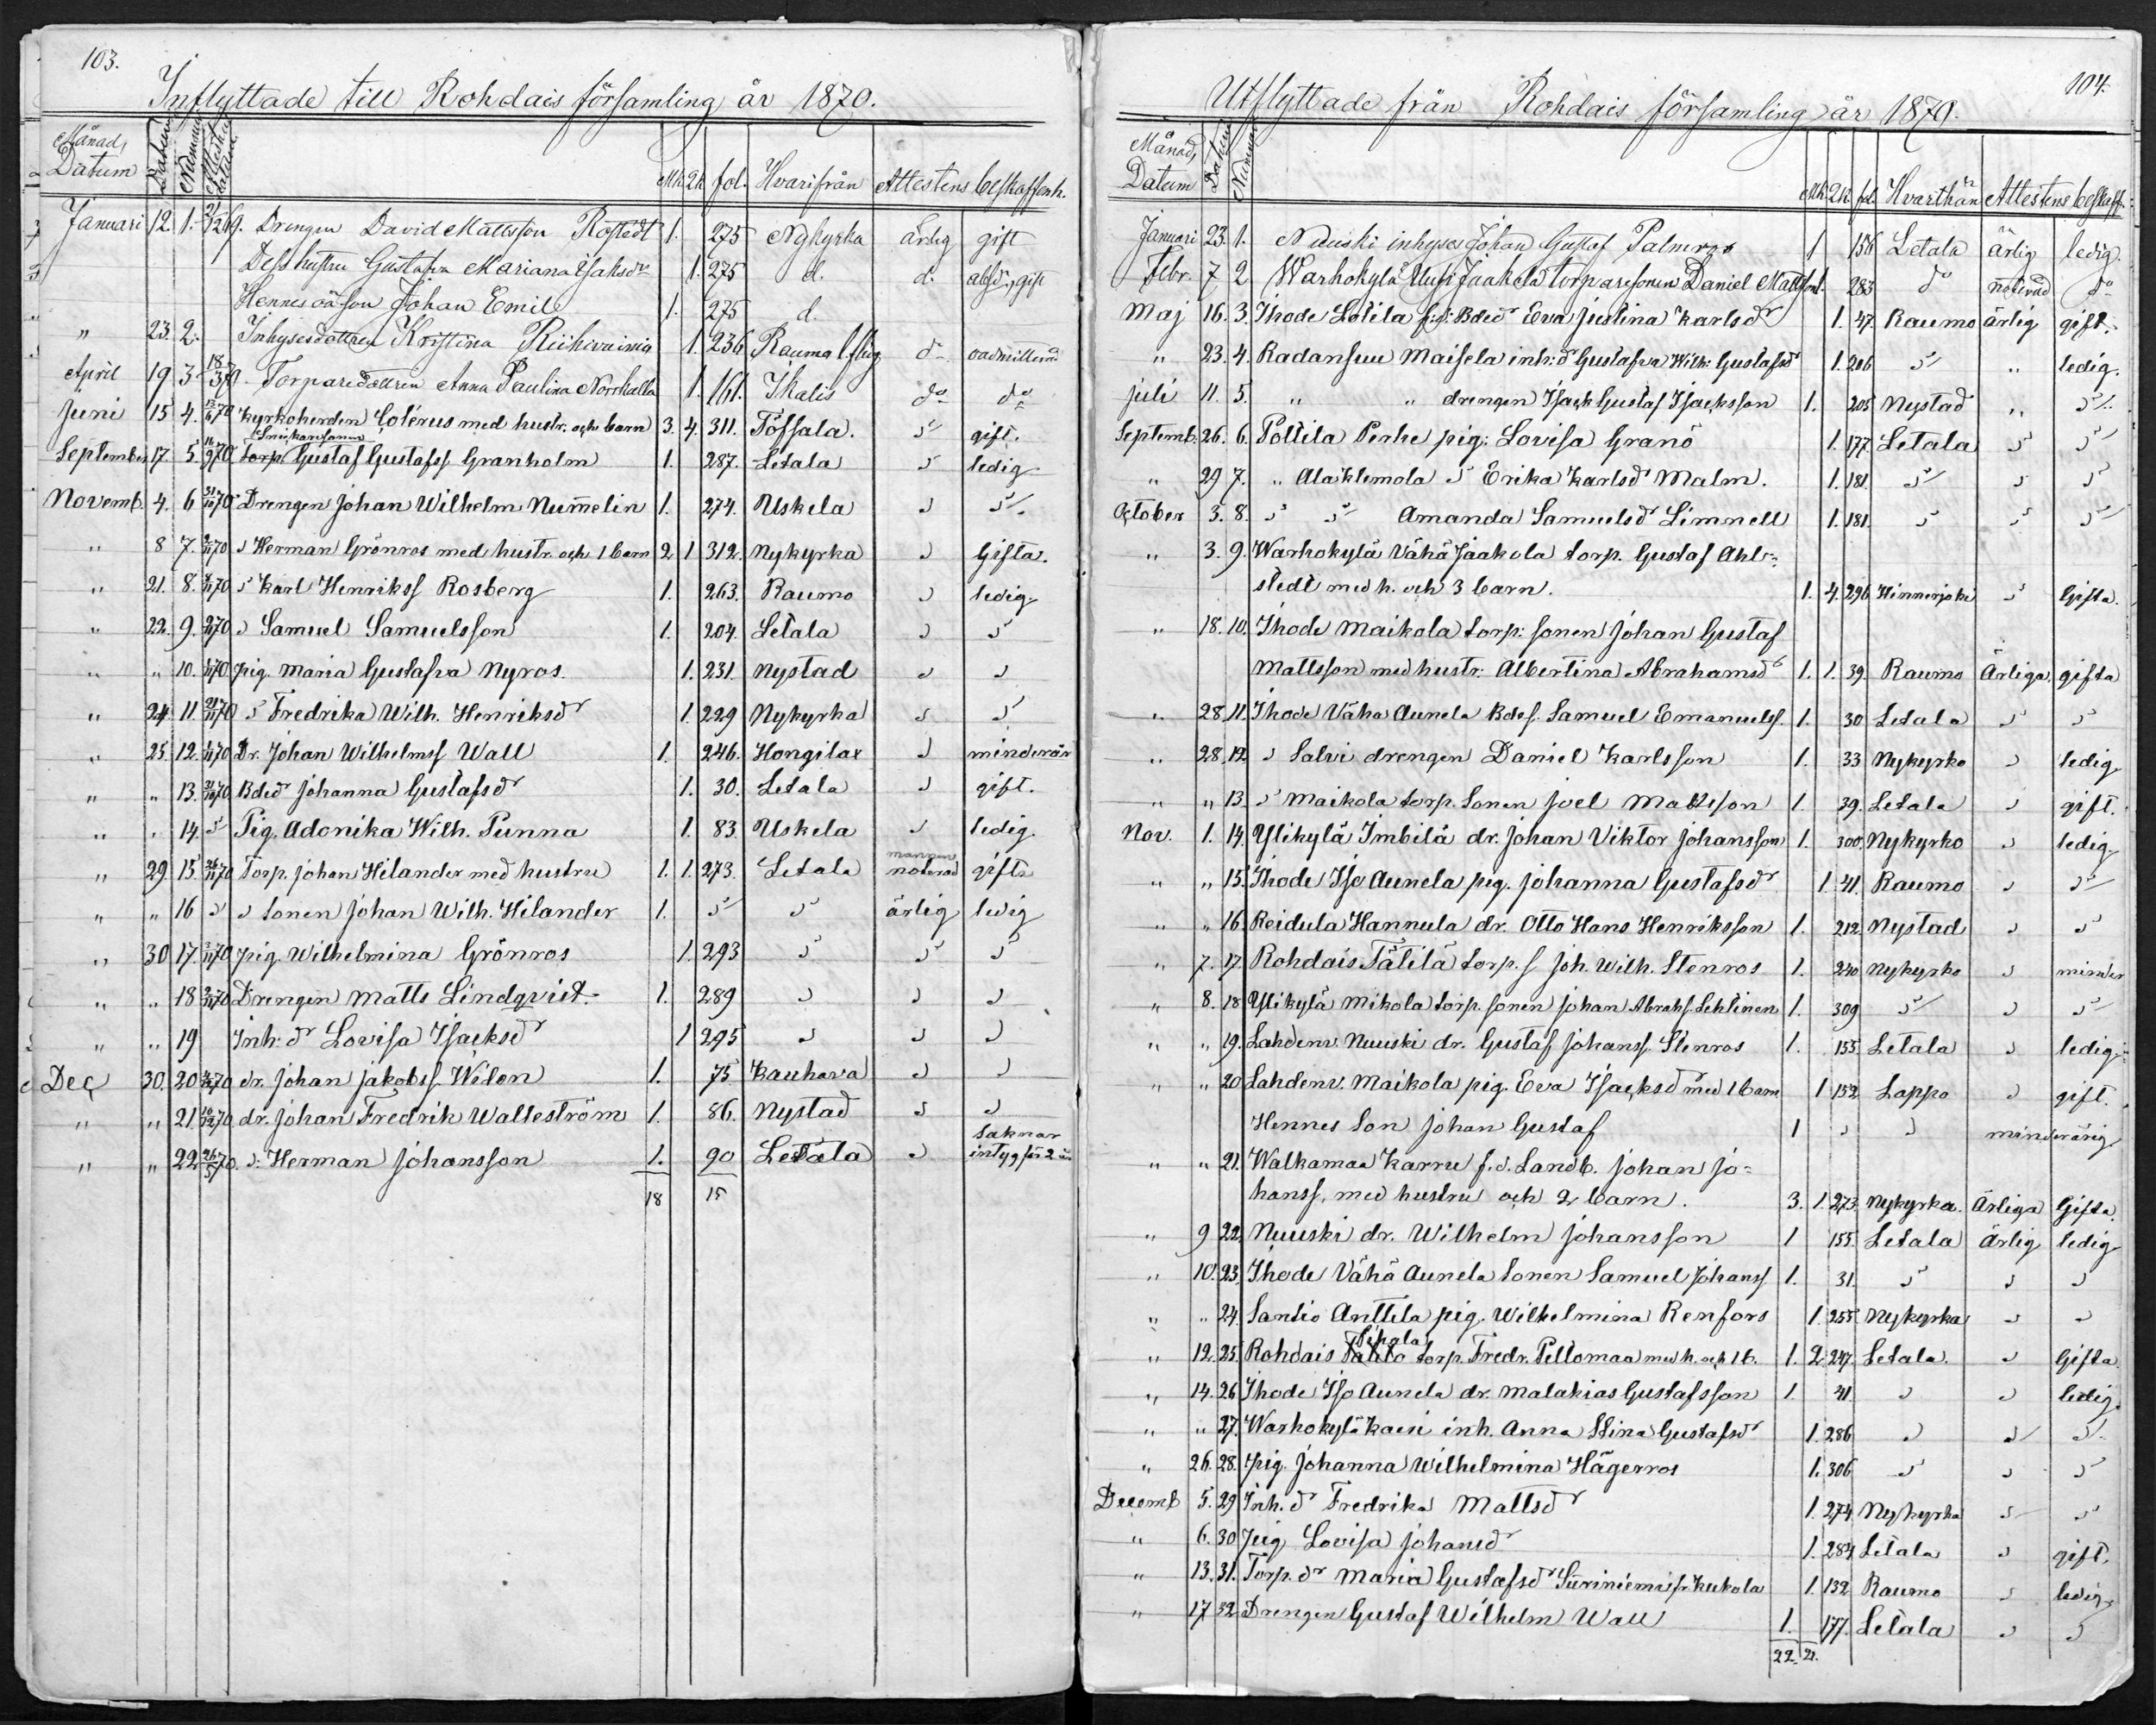 103.
Inflyttade till Rohdais församling år 1870.
Månad, Datum Datum Nummer Attestens datum Mk. Qk. fol. Hvarifrån Attestens beskaffenh.
Januari 12. 1. 21/12 69. Drengen David Mattsson Rostedt 1. 275 Nykyrka ärlig gift
Dess hustru Gustafva Mariana Isaksdr 1. 275 d. d. absd., gift
Hennes oä. son Johan Emil 1. 275 d.
" 23. 2. Inhysesdottren Kristina Riihivainia 1. 236 Rauma do oadmitterad
April 19 3 18/3 70. Torparedottren Anna Paulina Norrkulla 1. 161. Ikalis do do
Juni 15 4. 13/6 70 Kyrkoherden Colérus med hustr. och barn 3. 4. 311. Töfsala. d gift.
Snickaresonen
September 17 5. 70 torp. Gustaf Gustafss Granholm 1. 287. Letala d ledig.
Novemb. 4. 6 31/10 70 Drengen Johan Wilhelm Num̄elin 1. 274. Uskela d d.
" 8 7. 70 d Herman Grönros med hustr. och 1 barn 2 1 312. Nykyrka d Gifta.
" 21. 8. 70 d Karl Henrikss Rosberg 1. 263. Raumo d ledig.
" 22. 9. 70 d Samuel Samuelsson 1. 204. Letala d d
" " 10. 70 pig. Maria Gustafva Nyros. 1. 231. Nystad d d
" 24 11. 21/11 70 d Fredrika Wilh. Henriksdr 1. 229 Nykyrka d d
" 25 12. 70 Dr. Johan Wilhelmss Wall 1. 246. Hongilax d minderår
" " 13. 70 Bded Johanna Gustafsdr 1. 30. Letala d gift.
" " 14. d Pig. Adonika Wilh. Punna 1. 83. Uskela d ledig.
" 29 15 70 Torp. Johan Hilander med hustru 1. 1. 273. Letala mannen noterad gifta
" " 16 d d sonen Johan Wilh. Hilander 1. d d ärlig ledig
" 30 17. 70 pig. Wilhelmina Grönros 1. 293 d d d
" " 18 70 Drengen Matts Lindqvist. 1. 289 d d d
" " 19 Inh. dr Lovisa Isacksdr 1 295 d d d
Dec 30. 20 70 dr. Johan Jakobss. Wilen 1. 75 Kauhava d d
" " 21. 70 dr. Johan Fredrik Walleström 1. 86. Nystad d d
" " 22 26/5 70. d: Herman Johansson 1. 90 Letala d saknar intyg för 2 år
18 15
104.
Utflyttade från Rohdais församling år 1870.
Månad, Datum Datum Nummer Mk. Qk. fol. Hvarthän Attestens beskaff.
Januari 23. 1. Nuuski inhyses Johan Gustaf Palmroos 1 156 Letala ärlig ledig.
Febr. 7 2 Warhokylä Uusi Jaakola torparesonen Daniel Mattsson 1. 283 do noterad do
Maj 16. 3. Ihode Lotila Bded Eva Justina Karlsdr 1. 47. Raumo ärlig gift.
" 23. 4. Radansuu Maisela inh: dr Gustafva Wilh: Gustafsd 1. 206 d " ledig.
Juli 11. 5. " " drengen Isack Gustaf Isacksson 1. 205 Nystad " d.
Septemb. 26. 6. Pottila Perhe pig: Lovisa Granö 1. 177. Letala d d
" 29 7. " Alaklemola d Erika Karlsdr Malm. 1. 181. d d d
October 3. 8. d d Amanda Samuelsdr Limnell 1. 181. d d d
" 3. 9. Warhokylä Vähä Jaakola torp. Gustaf Ahl-
stedt med h. och 3 barn. 1. 4. 296 Hinnerjoki d Gifta.
" 18. 10. Ihode Maikola torp: sonen Johan Gustaf
Mattsson med hustr: Albertina Abrahamsdr 1. 1. 39. Raumo Ärliga gifta
" 28. 11. Ihode Vähä Aunela Bdes. Samuel Emanuelss. 1. 30 Letala d d
" 28. 12. d Salvi drengen Daniel Karlsson 1. 33 Nykyrko d ledig
" " 13. d Maikola torp. Sonen Joel Mattsson 1. 39. Letala d gift.
Nov. 1. 14. Ylikylä Imbilä dr. Johan Viktor Johansson 1. 300. Nykyrko d ledig
" " 15. Ihode Iso Aunela pig. Johanna Gustafsdr 1 41. Raumo d d
" " 16. Reidula Hannula dr. Otto Hans Henriksson 1. 212. Nystad d d
" 7. 17. Rohdais Tätilä torp. s Joh. Wilh. Stenros 1. 240 Nykyrko d minder
" 8. 18 Ylikylä Mikola torp. sonen Johan Abrahs. Lehtinen 1. 309 d d d
" " 19. Lahdenv. Nuuski dr. Gustaf Johanss. Stenros 1. 155. Letala d ledig.
" " 20 Lahdenv. Maikola pig. Eva Isacksdr med 1 barn 1 152 Lappo d gift.
Hennes Son Johan Gustaf 1 d d minderårig
" " 21. Walkamaa Karru f. d. Landb. Johan Jo=
hanss. med hustru och 2 barn. 3. 1. 273. Nykyrka. Ärliga Gifta.
" 9 22. Nuuski dr. Wilhelm Johansson 1 155. Letala Ärlig ledig
" 10. 23. Ihode Vähä Aunela Sonen Samuel Johanss. 1. 31. d d d
" " 24. Santio Anttila pig. Wilhelmina Renfors 1. 255. Nykyrka d d
" 12. 25. Rohdais Sipola torp. Fredr. Pellomaa med h. och 1 b. 1. 2. 247. Letala. d Gifta.
" 14. 26 Ihode Iso Aunela dr. Malakias Gustafsson 1. 41. d d ledig.
" " 27. Warhokylä Kaesi inh. Anna Stina Gustafsdr 1. 286 d d d.
" 26. 28. pig. Johanna Wilhelmina Hägerros 1. 306 d d d
Decemb 5. 29 Inh. dr Fredrika Mattsdr 1. 274 Nykyrka d d
" 6. 30 pig. Lovisa Johansdr 1. 284 Letala d gift.
" 13. 31. Torp. dr Maria Gustafsdr Suriniemi fr. Kukola 1. 132 Raumo d ledig
" 17 32 Drengen Gustaf Wilhelm Wall 1. 177. Letala d d
22. 21.